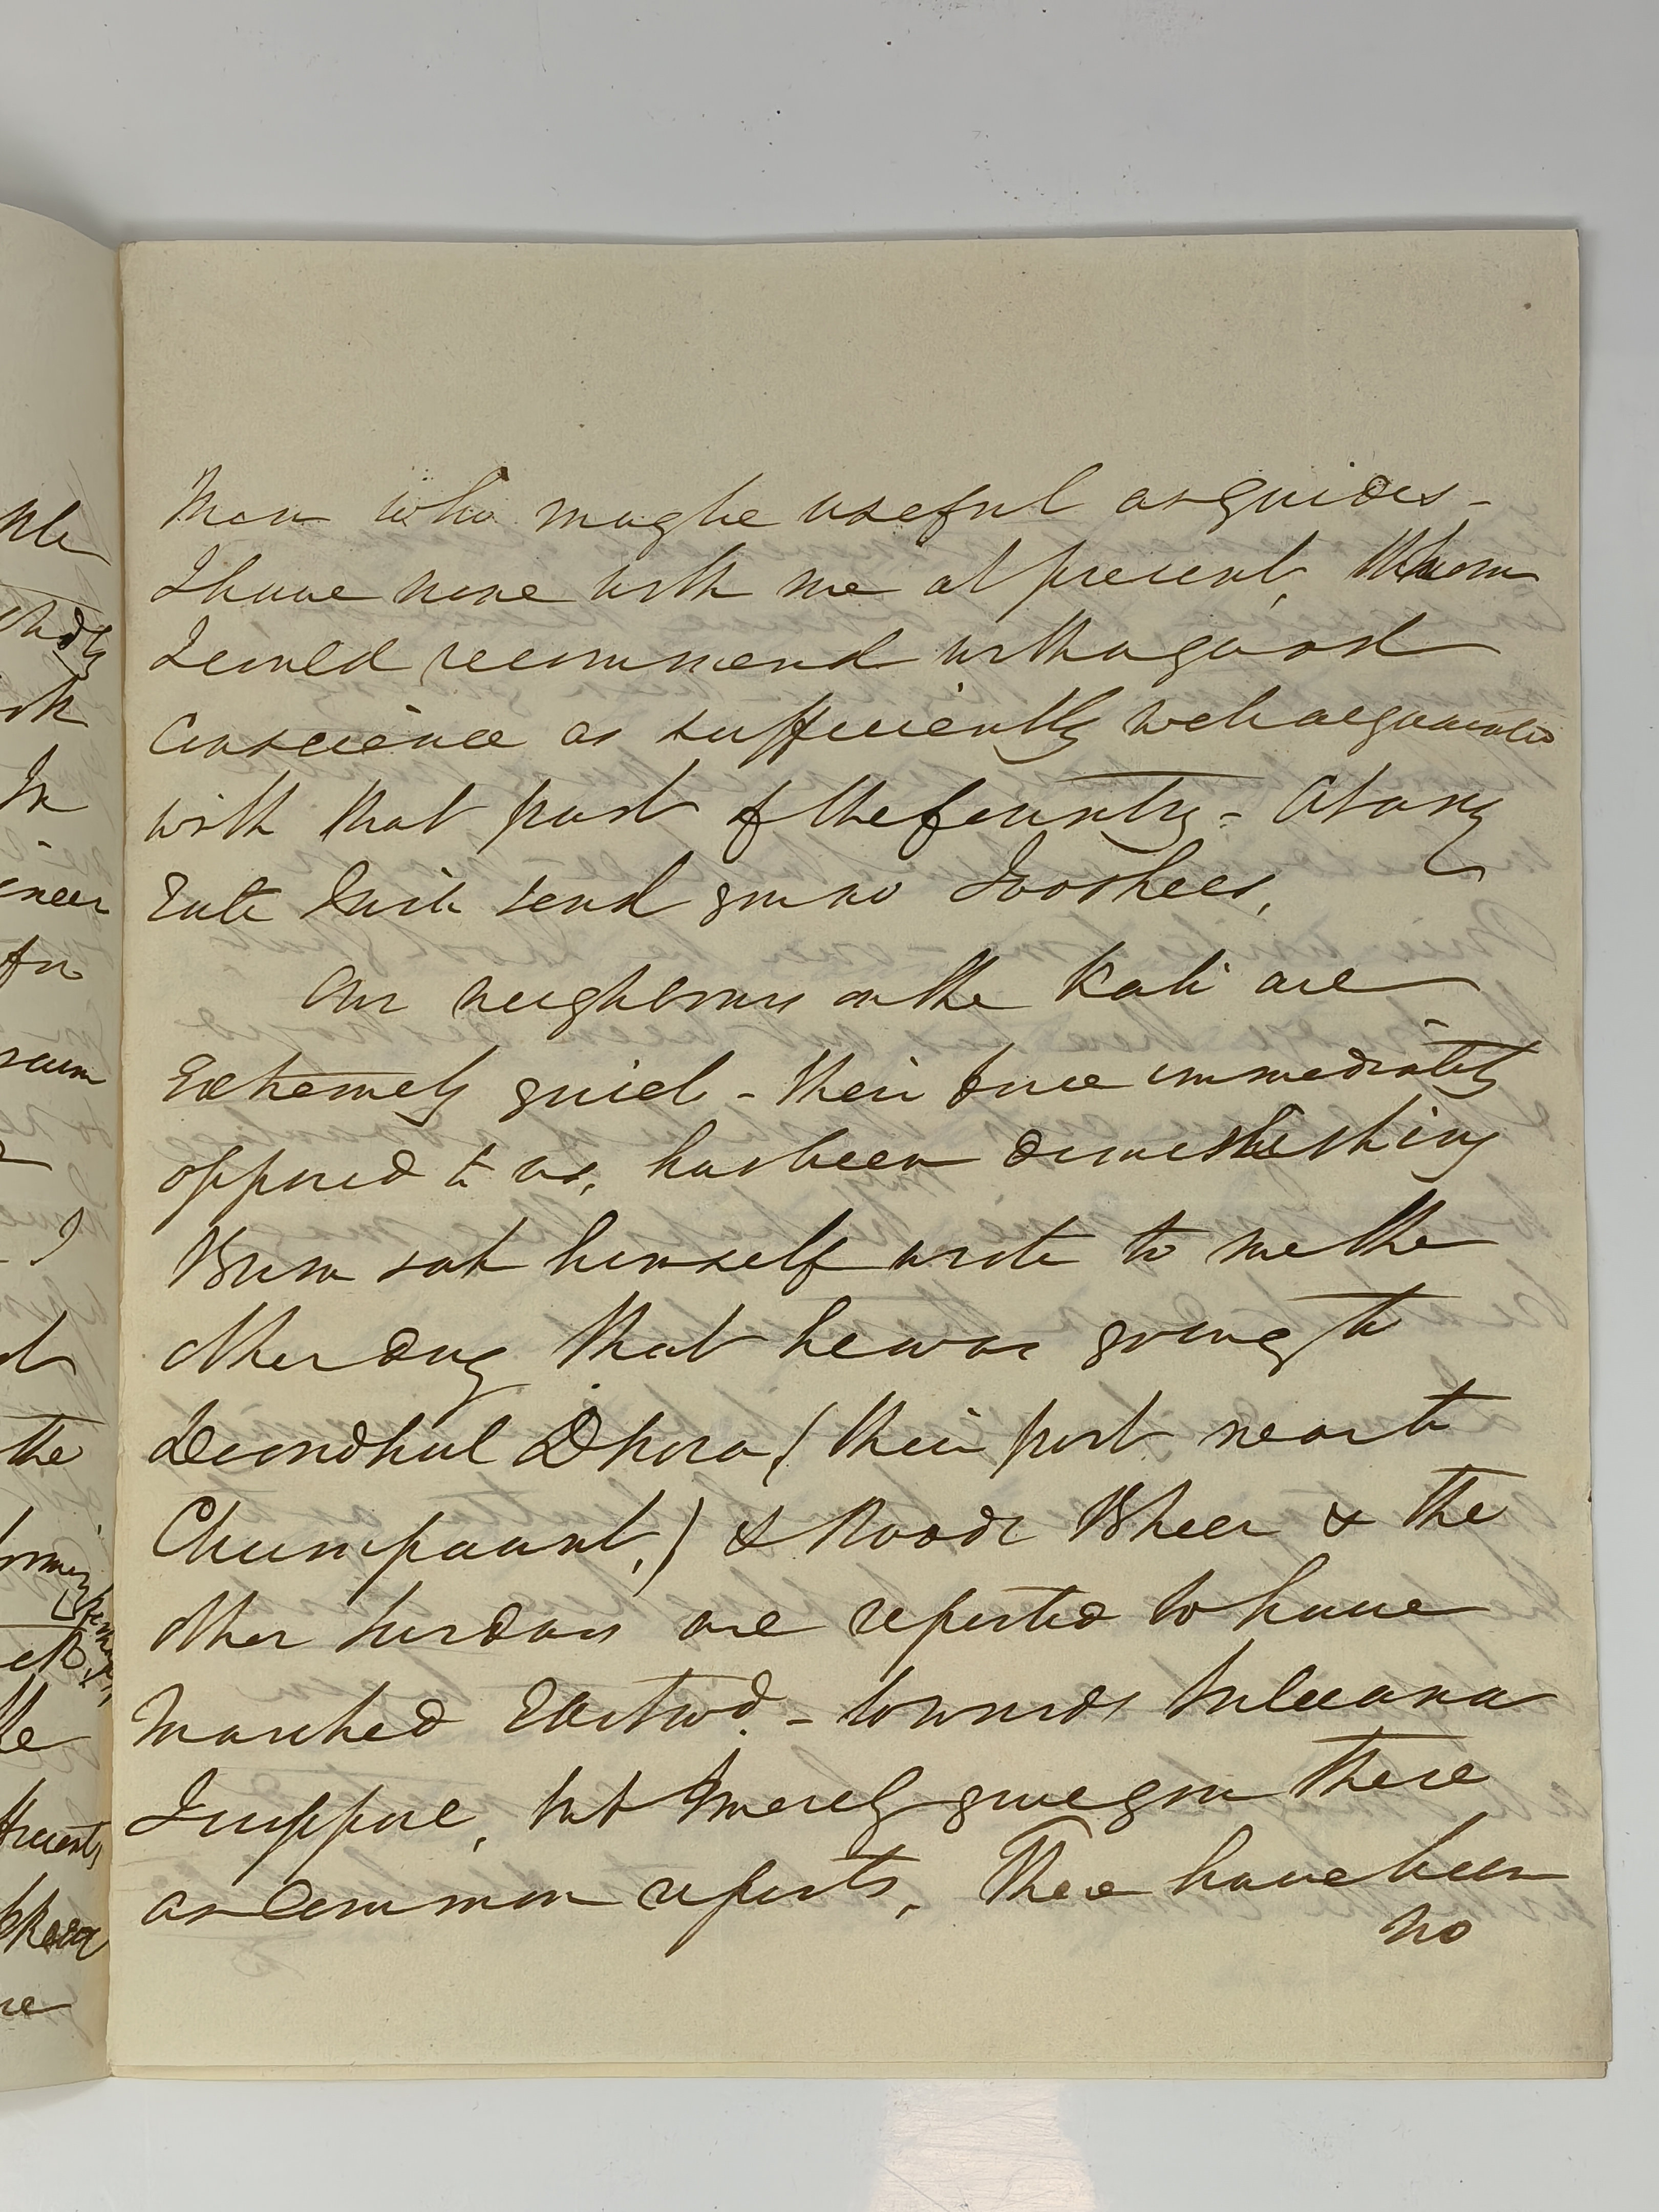 Men who may be useful as guides -
I have none with me at present, Whom
I could recommend with a good
Conscience as sufficiently well acquainted
with that part of the Country - At any
rate I will send you no Jooshees,
Our neighbours on the Kali are
Extremely quiet - their force immediately
opposed to us, has been diminishing
Bum sah himself wrote to me the
other day that he was going to
Deondhul Dhora (their post near to
Chumpaunt,) & Roodr Bheer & the
other Surdars are reported to have
Marched Eastwd. - towards
I suppose, but I merely give you these
as Common reports, There have been
no
the